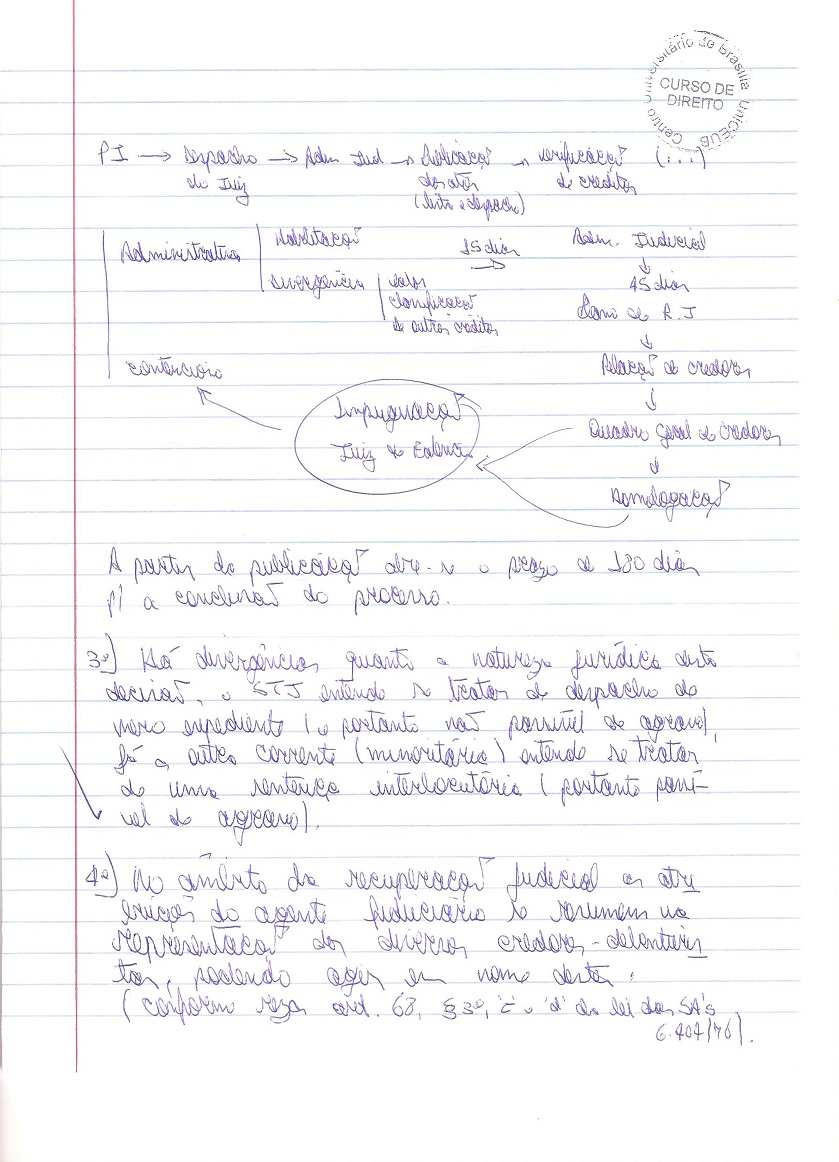 Centro Universitário de Brasília UniCEUB
CURSO DE
DIREITO
PI → Despacho → Adm Jud → Publicação → verificação (...)
do Juiz dos atos de creditos
(lista e despacho)
Administrativa Habilitação 15 dias Adm. Judicial
divergência valor 45 dias
classificação Plano de R.J
de outros créditos
contencioso Relação de credores
Impugnação Quadro Geral de credores
Juiz de
Homologação
A partir da publicação abre-se o prazo de 180 dias
p/ a conclusão do processo.
3º) Há divergências quanto a natureza jurídica desta
decisão, o STJ entende se tratar de despacho de
mero expediente (e portanto não passível de agravo),
já a outra corrente (minoritária) entende se tratar
de uma sentença interlocutória (portanto passí-
vel de agravo).
4º) No âmbito da recuperação judicial as atri
buições do agente fiduciário se resumem na
representação dos diversos credores-debenturis
tas, podendo agir em nome destes.
(conforme reza art. 68, § 3º, 'c' e 'd' da lei das SA's
6.404/76).